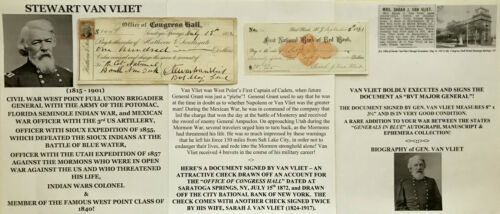 STEWART VAN VLIET
(1815 - 1901)
CIVIL WAR WEST POINT FULL UNION BRIGADIER
GENERAL WITH THE ARMY OF THE POTOMAC,
FLORIDA SEMINOLE INDIAN WAR, and MEXICAN
WAR OFFICER WITH THE 3rd US ARTILLERY,
OFFICER WITH SIOUX EXPEDITION OF 1855,
WHICH DEFEATED THE SIOUX INDIANS AT THE
BATTLE OF BLUE WATER,
OFFICER WITH THE UTAH EXPEDITION OF 1857
AGAINST THE MORMONS WHO WERE IN OPEN
WAR AGAINST THE US AND WHO THREATENED
HIS LIFE,
INDIAN WARS COLONEL
&
MEMBER OF THE FAMOUS WEST POINT CLASS OF
1840!
Office of Congress Hall,
Saratoga Springs, July 15th 1872
One hundred
First National Bank of Red Bank,
Van Vliet was West Point's First Captain of Cadets, when future
General Grant was just a "plebe"! General Grant used to say that he was
at the time in doubt as to whether Napoleon or Van Vliet was the greater
man! During the Mexican War, he was in command of the company that
led the charge that won the day at the battle of Monterey and received
the sword of enemy General Ampudia. On approaching Utah during the
Mormon War, several travelers urged him to turn back, as the Mormons
had threatened his life. He was so much impressed by these warnings
that he left his force 150 miles from Salt Lake City, in order not to
endanger their lives, and rode into the Mormon stronghold alone! Van
Vliet received 4 brevets in the course of his military career!
HERE'S A DOCUMENT SIGNED BY VAN VLIET – AN
ATTRACTIVE CHECK DRAWN OFF AN ACCOUNT FOR
THE "OFFICE OF CONGRESS HALL" DATED AT
SARATOGA SPRINGS, NY, JULY 15th 1872, and DRAWN
OFF THE CITY BATIONAL BANK OF NEW YORK. THE
CHECK COMES WITH ANOTHER CHECK SIGNED TWICE
BY HIS WIFE, SARAH J. VAN VLIET (1824-1917).
MRS. SARAH J. VAN VLIET.
VAN VLIET BOLDLY EXECUTES AND SIGNS THE
DOCUMENT AS "BVT MAJOR GENERAL"!
THE DOCUMENT SIGNED BY GEN. VAN VLIET MEASURES 8" x
2½" AND IS IN VERY GOOD CONDITION.
A RARE ADDITION TO YOUR WAR BETWEEN THE STATES
"GENERALS IN BLUE" AUTOGRAPH, MANUSCRIPT &
EPHEMERA COLLECTION!
BIOGRAPHY of GEN. VAN VLIET